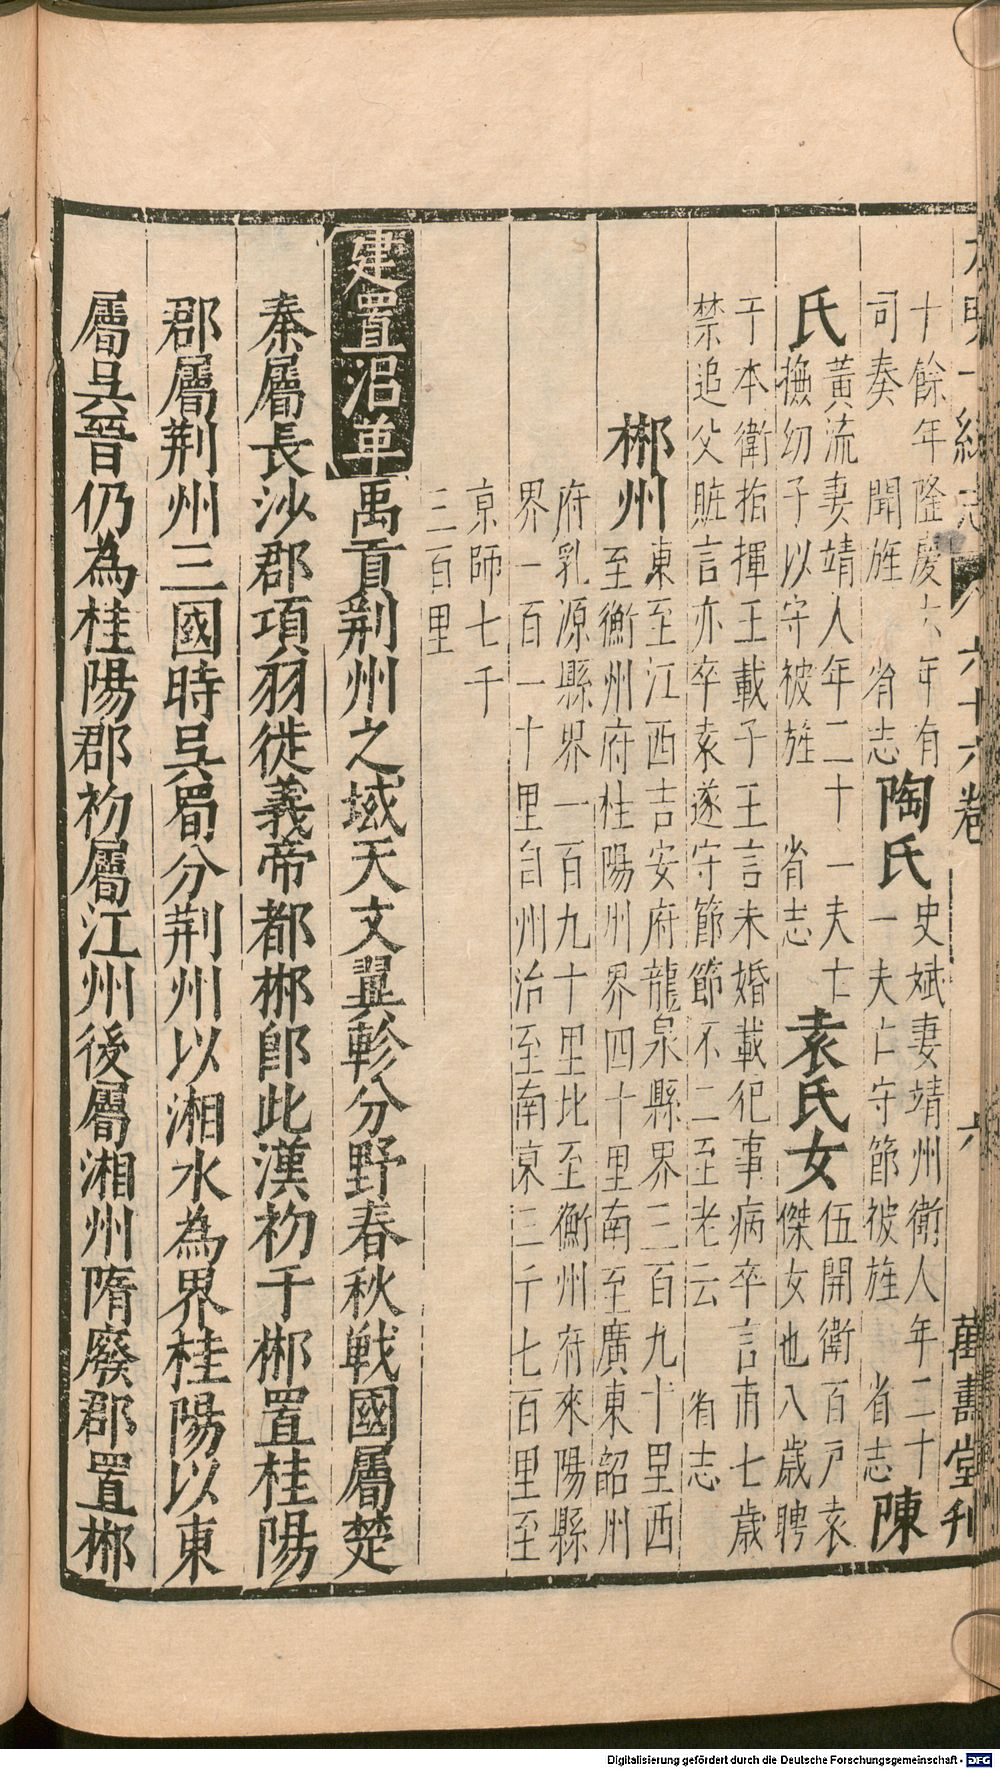 大明一統志 六十六卷 六 萬壽堂刊
十餘年隆慶六年有
司奏聞旌 省志
陶氏
史斌妻靖州衛人年二十
一夫亡守節被旌 省志
陳
氏
黃流妻靖人年二十一夫亡
撫幼子以守被旌 省志
袁氏女
伍開衛百戶袁
傑女也八歲聘
于本衛指揮王載子王言未婚載犯事病卒言甫七歲
禁追父賍言亦卒袁遂守節節不二至老云 省志
郴州
東至江西吉安府龍泉縣界三百九十里西
至衡州府桂陽州界四十里南至廣東韶州
府乳源縣界一百九十里北至衡州府來陽縣
界一百一十里自州治至南京三千七百里至
京師七千
三百里
建置沿革禹貢荆州之域天文翼軫分野春秋戰國屬楚
秦屬長沙郡項羽徙義帝都郴卽此漢初于郴置桂陽
郡屬荆州三國時吳蜀分荆州以湘水為界桂陽以東
屬吳晉仍為桂陽郡初屬江州後屬湘州隋廢郡置郴
Digitalisierung gefördert durch die Deutsche Forschungsgemeinschaft - DFG